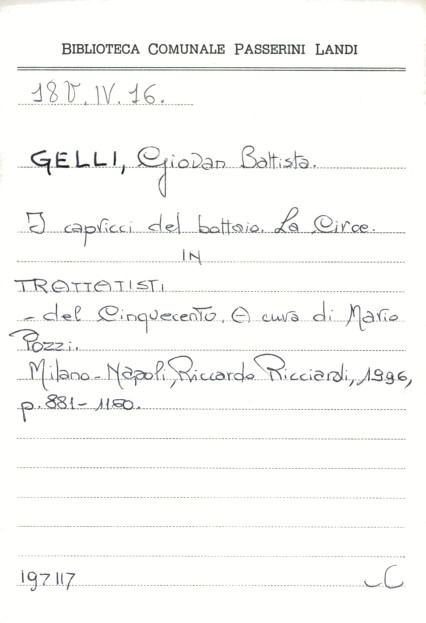 BIBLIOTECA COMUNALE PASSERINI LANDI
18 V. IV. 16.
GELLI, Giovan Battista.
I capricci del bottaio. La Circe.
IN
TRATTATISTI
- del Cinquecento. A cura di Mario
Pozzi.
Milano-Napoli, Riccardo Ricciardi, 1996,
p. 881-1160.
197117